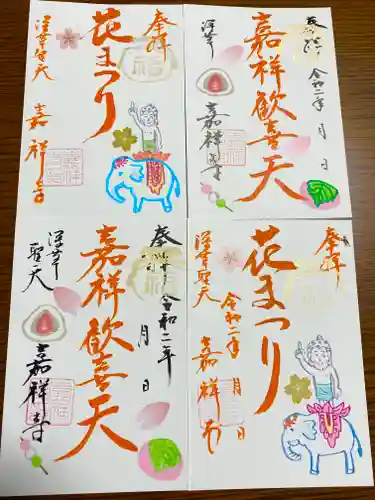 奉拝
花まつり
深草聖天
嘉祥寺
奉拝
令和二年 月 日
嘉祥歓喜天
深草
嘉祥寺
奉拝
令和二年
月 日
嘉祥歓喜天
深草
聖天
嘉祥寺
奉拝
花まつり
深草聖天
令和二年 月 日
嘉祥寺